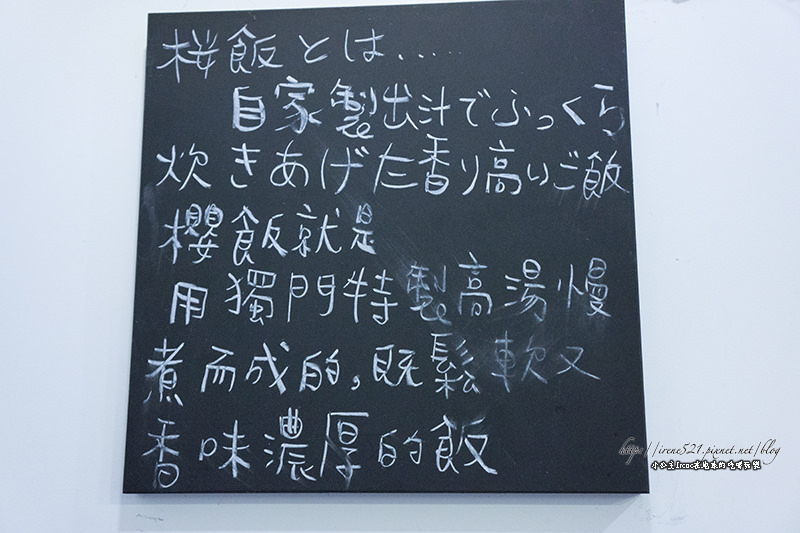 桜飯とは......
自家製出汁でふっくら
炊きあげた香り高いご飯
櫻飯就是
用獨門特製高湯慢
煮而成的,既鬆軟又
香味濃厚的飯
https://irene521.pixnet.net/blog